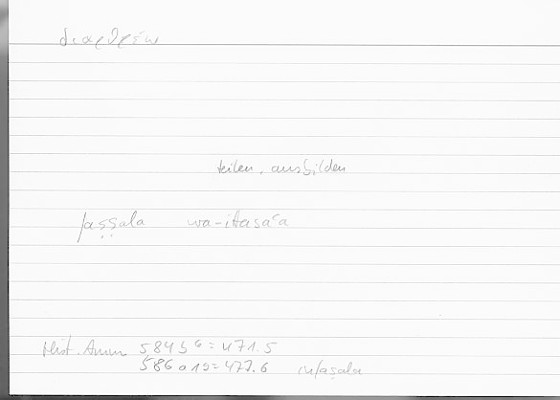 διαρθρόω
teilen, ausbilden
faṣṣala wa-ittasaʿa
Hist. Anim 584 b 6 = 471.5
586 a 19 = 477.6 infaṣala